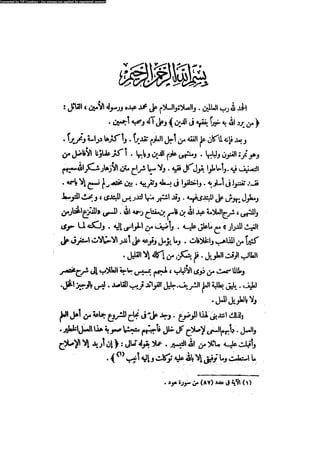 Converted by Tiff Combine - (no stamps are applied by registered version)
بسم الله الرحمن الرحيم
الحمد لله رب العالمين . والصلاة والسلام على محمد عبده ورسوله الأمين ، القائل :
( من يرد الله به خيراً يفقهه في الدين ) وعلى آله وصحبه أجمعين .
وبعد فإنه لما كان علم الفقه من أجل العلوم تقديراً . وأكثرها دراسة وتحريراً .
وهو ثمرة الفنون ولبابها . ومنتهى علوم الدين وبابها . أكثر علماؤنا الأفاضل من
التصنيف فيه . وأحاطوا بقول كل فقيه . ولا سيما شراح متن الأزهار شكر الله سعيهم
فقد تفننوا في أسلوبه . واختلفوا في بسطه وتقريبه . بين مختصر لم نسمع إلا باسمه .
ومطول يهوش على المبتدي فهمه . وقد اشتهر منها لتدريس المبتدي ، وبحث المتوسط
والمنتهي ، شرح العلامة عبد الله بن قاسم بن مفتاح رحمه الله . المسمى «المنتزع المختار من
الغيث المدرار» مع ما علق عليه . وأضيف من الحواشي إليه . ولكنه لما حوى
كثيراً من المذاهب والخلافات . وما يؤمل وقوعه على أندر الاحتمالات استغرق على
الطالب الوقت الطويل . فلم يتمكن من إكماله إلا القليل .
وطالما سمعت من ذوي الألباب ، لهجهم بمسيس حاجة الطلاب إلى شرح مختصر
لطيف . يليق بطلبة العلم الشريف . جليل الفوائد قريب المقاصد . ليس بالوجيز المخل .
ولا بالطويل الممل .
ولذلك انتدبني لهذا الموضوع . وجد علي في نجاح المشروع جماعة من أهل العلم
والعمل . دأبهم السعي لإصلاح كل خلل فأجبتهم متجشما صعوبة هذا العمل الخطير .
وأقبلت عليه سائلا من الله التيسير . عملا بقوله تعالى : ( إن أريد إلا الإصلاح
ما استطعت وما توفيقي إلا بالله عليه توكلت وإليه أنيب (١) ) .
(١) الآية في عدد (٨٧) من سورة هود .